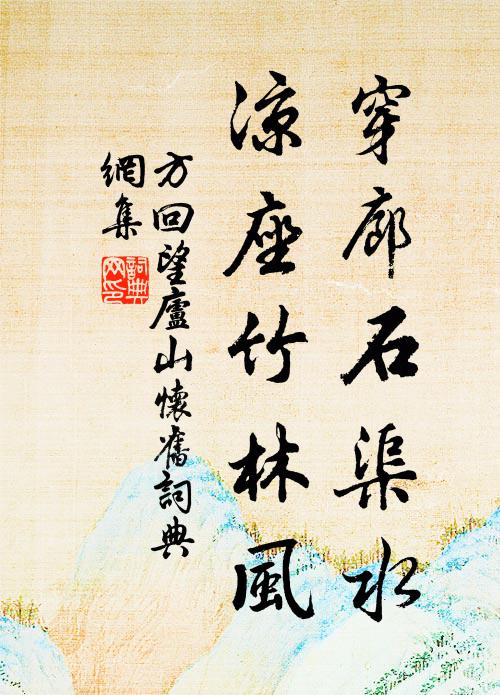 穿廊石渠水
凉座竹林風
方回望廬山懷舊詞典
網集
詞典
网印